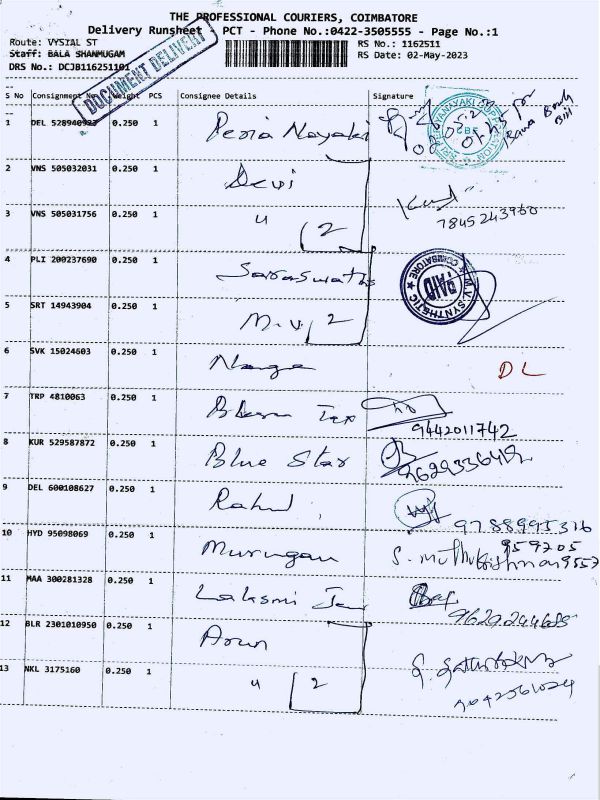 THE PROFESSIONAL COURIERS, COIMBATORE
Delivery Runsheet - PCT - Phone No.:0422-3505555 - Page No.:1
Route: VYSIAL ST RS No.: 1162511
Staff: BALA SHANMUGAM RS Date: 02-May-2023
DRS No.: DCJB1162511101
DOCUMENT DELIVERY
S No Consignment No Weight PCS Consignee Details Signature
1 DEL 528940923 0.250 1 Peria Nayaki
2 VNS 505032031 0.250 1 Devi
3 VNS 505031756 0.250 1 " 2 7845243960
4 PLI 200237690 0.250 1 Saraswathi
M.V.SYNTHETIC PAID COIMBATORE
5 SRT 14943904 0.250 1 M.V. 2
6 SVK 15024603 0.250 1 Naga DL
7 TRP 4810063 0.250 1 Tex 9442011742
8 KUR 529587872 0.250 1 Blue Star 9629336419
9 DEL 600108627 0.250 1 Rahul 9788995316
10 HYD 95098069 0.250 1 Murugan S. Muthukrishnan
11 MAA 300281328 0.250 1 Laksmi
12 BLR 2301010950 0.250 1 Arun
13 NKL 3175160 0.250 1 " 2